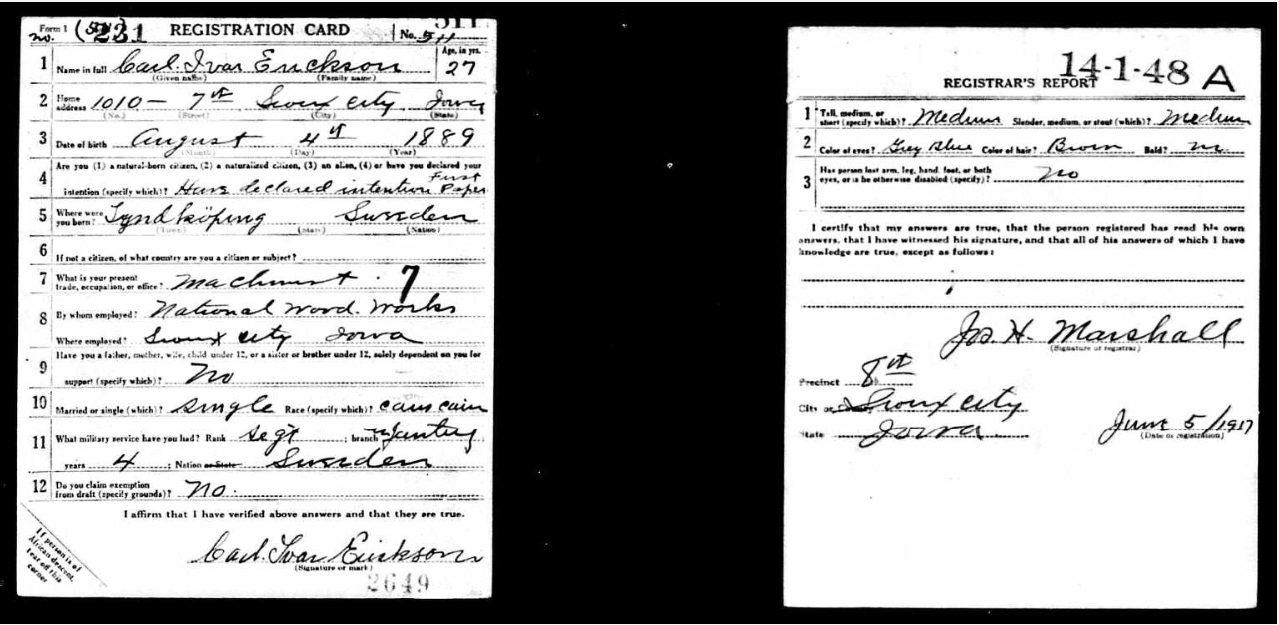 Form 1
REGISTRATION CARD
No. 511
no. 231
1 Name in full Carl. Ivar Erickson
(Given name) (Family name)
Age, in yrs. 27
2 Home address 1010 - 7th Sioux City, Iowa
(No.) (Street) (City) (State)
3 Date of birth August 4th 1889
(Month) (Day) (Year)
4 Are you (1) a natural-born citizen, (2) a naturalized citizen, (3) an alien, (4) or have you declared your
intention (specify which)? Have declared intention First Paper
5 Where were you born? Lyndköping Sweden
(Town) (State) (Nation)
6 If not a citizen, of what country are you a citizen or subject?
7 What is your present trade, occupation, or office? Machinist 7
8 By whom employed? National Wood. Works
Where employed? Sioux City Iowa
9 Have you a father, mother, wife, child under 12, or a sister or brother under 12, solely dependent on you for
support (specify which)? No
10 Married or single (which)? Single Race (specify which)?
11 What military service have you had? Rank Segt ; branch Infantry
years 4 ; Nation or State Sweden
12 Do you claim exemption from draft (specify grounds)? No.
I affirm that I have verified above answers and that they are true.
Carl. Ivar Erickson
(Signature or mark)
2649
If person is of
African descent,
tear off this
corner
14-1-48 A
REGISTRAR'S REPORT
1 Tall, medium, or short (specify which)? Medium Slender, medium, or stout (which)? Medium
2 Color of eyes? Grey Blue Color of hair? Brown Bald? no
3 Has person lost arm, leg, hand, foot, or both
eyes, or is he otherwise disabled (specify)? No
I certify that my answers are true, that the person registered has read his own
answers, that I have witnessed his signature, and that all of his answers of which I have
knowledge are true, except as follows:
Jos H. Marshall
(Signature of registrar)
Precinct 8th
City or Sioux City
State Iowa
June 5/1917
(Date of registration)